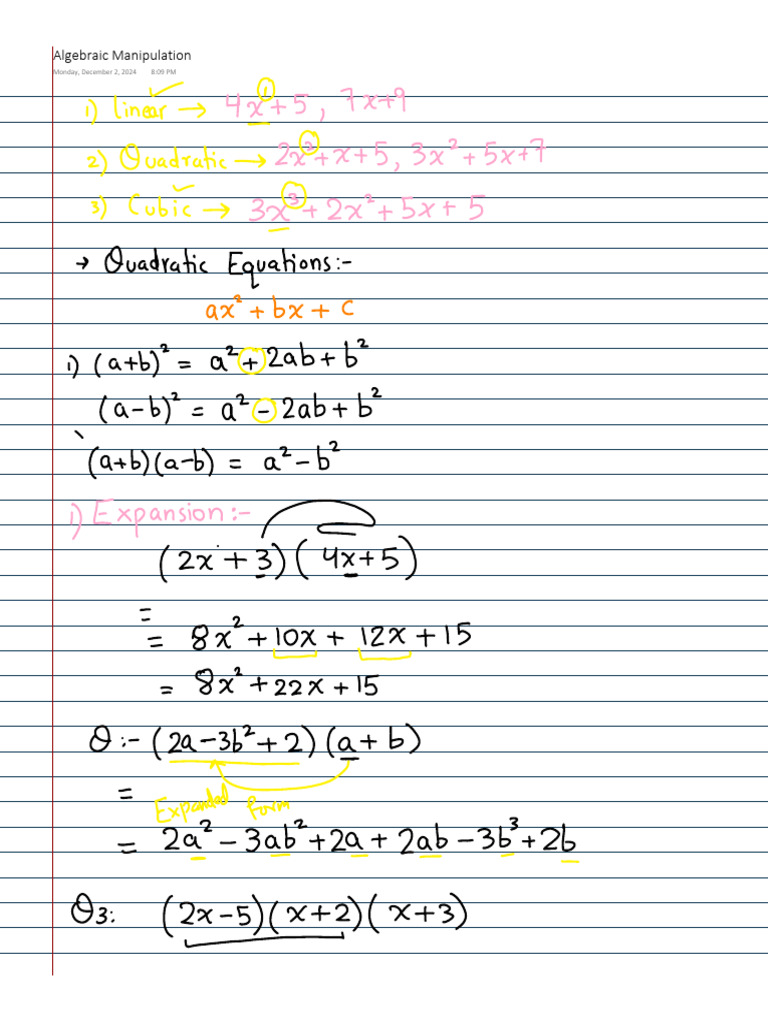 Algebraic Manipulation
Monday, December 2, 2024 8:09 PM
1) Linear → 4x¹ + 5 , 7x+9
2) Quadratic → 2x² + x + 5, 3x² + 5x + 7
3) Cubic → 3x³ + 2x² + 5x + 5
→ Quadratic Equations:-
ax² + bx + c
1) (a+b)² = a² + 2ab + b²
(a-b)² = a² - 2ab + b²
(a+b)(a-b) = a² - b²
1) Expansion:-
(2x + 3)(4x + 5)
=
= 8x² + 10x + 12x + 15
= 8x² + 22x + 15
Q:- (2a - 3b² + 2)(a + b)
=
Expanded form
= 2a² - 3ab² + 2a + 2ab - 3b³ + 2b
Q3: (2x-5)(x+2)(x+3)